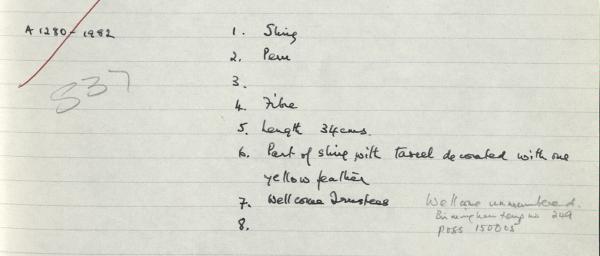 A 1280-1982
537
1. Sling
2. Peru
3.
4. Fibre
5. Length 34cms.
6. Part of sling with tassel decorated with one
yellow feather
7. Wellcome Trustees
Wellcome unnumbered.
Birmingham temp no 249
poss 150805
8.